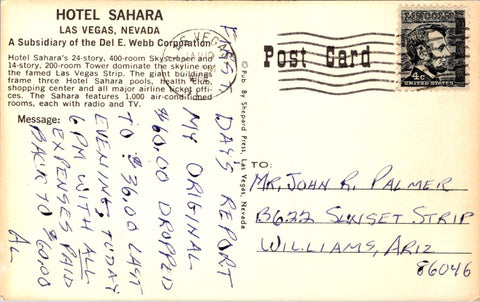 HOTEL SAHARA
LAS VEGAS, NEVADA
A Subsidiary of the Del E. Webb Corporation
Hotel Sahara's 24-story, 400-room Skyscraper and
14-story, 200-room Tower dominate the skyline on
the famed Las Vegas Strip. The giant buildings
frame three Hotel Sahara pools, health club,
shopping center and all major airline ticket offi-
ces. The Sahara features 1,000 air-conditioned
rooms, each with radio and TV.
Message:
FIRST DAY'S REPORT
MY ORIGINAL
$60.00 DRIPPED
TO $36.00 LAST
EVENING, TODAY
6PM WITH ALL
EXPENSES PAID
BACK TO $60.00
AL
© Pub. By Shepard Press, Las Vegas, Nevada
VEGAS
Post Card
4¢
UNITED STATES
TO:
MR, JOHN R. PALMER
B622 SUNSET STRIP
WILLIAMS, ARIZ
86046